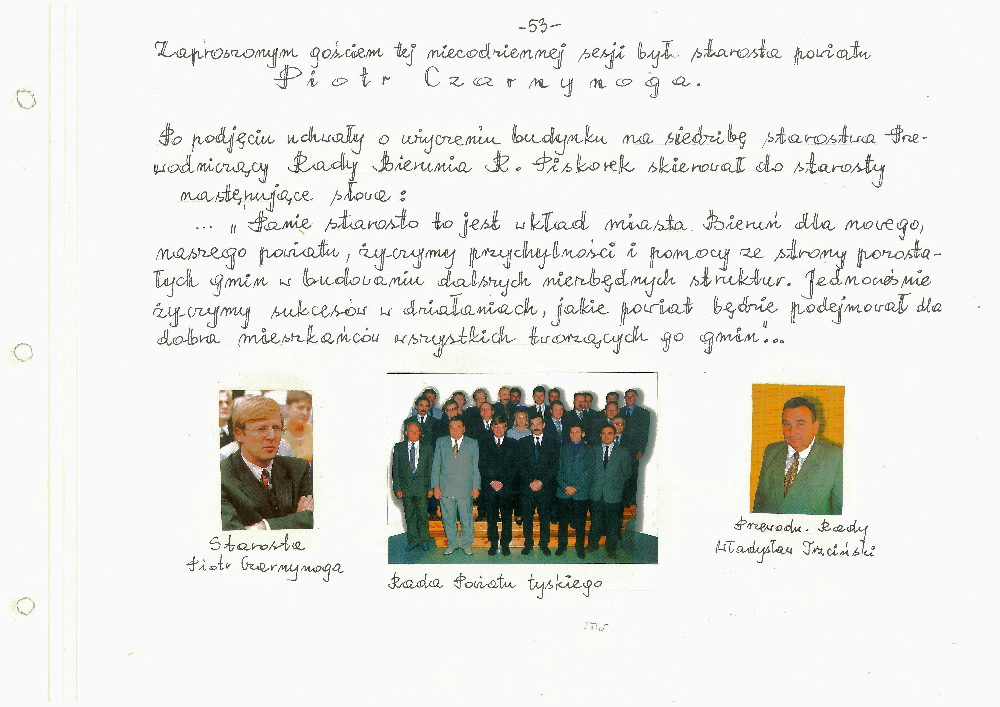 -53-
Zaproszonym gościem tej niecodziennej sesji był starosta powiatu
Piotr Czarnynoga.
Po podjęciu uchwały o użyczeniu budynku na siedzibę starostwa Prze-
wodniczący Rady Bierunia R. Piskorek skierował do starosty
następujące słowa:
... „Panie starosto to jest wkład miasta Bieruń dla nowego,
naszego powiatu, życzymy przychylności i pomocy ze strony pozosta-
łych gmin w budowaniu dalszych niezbędnych struktur. Jednocośnie
życzymy sukcesów w działaniach, jakie powiat będzie podejmował dla
dobra mieszkańców wszystkich tworzących go gmin"...
Starosta
Piotr Czarnynoga
Rada Powiatu tyskiego
Przewodn. Rady
Władysław Trzciński